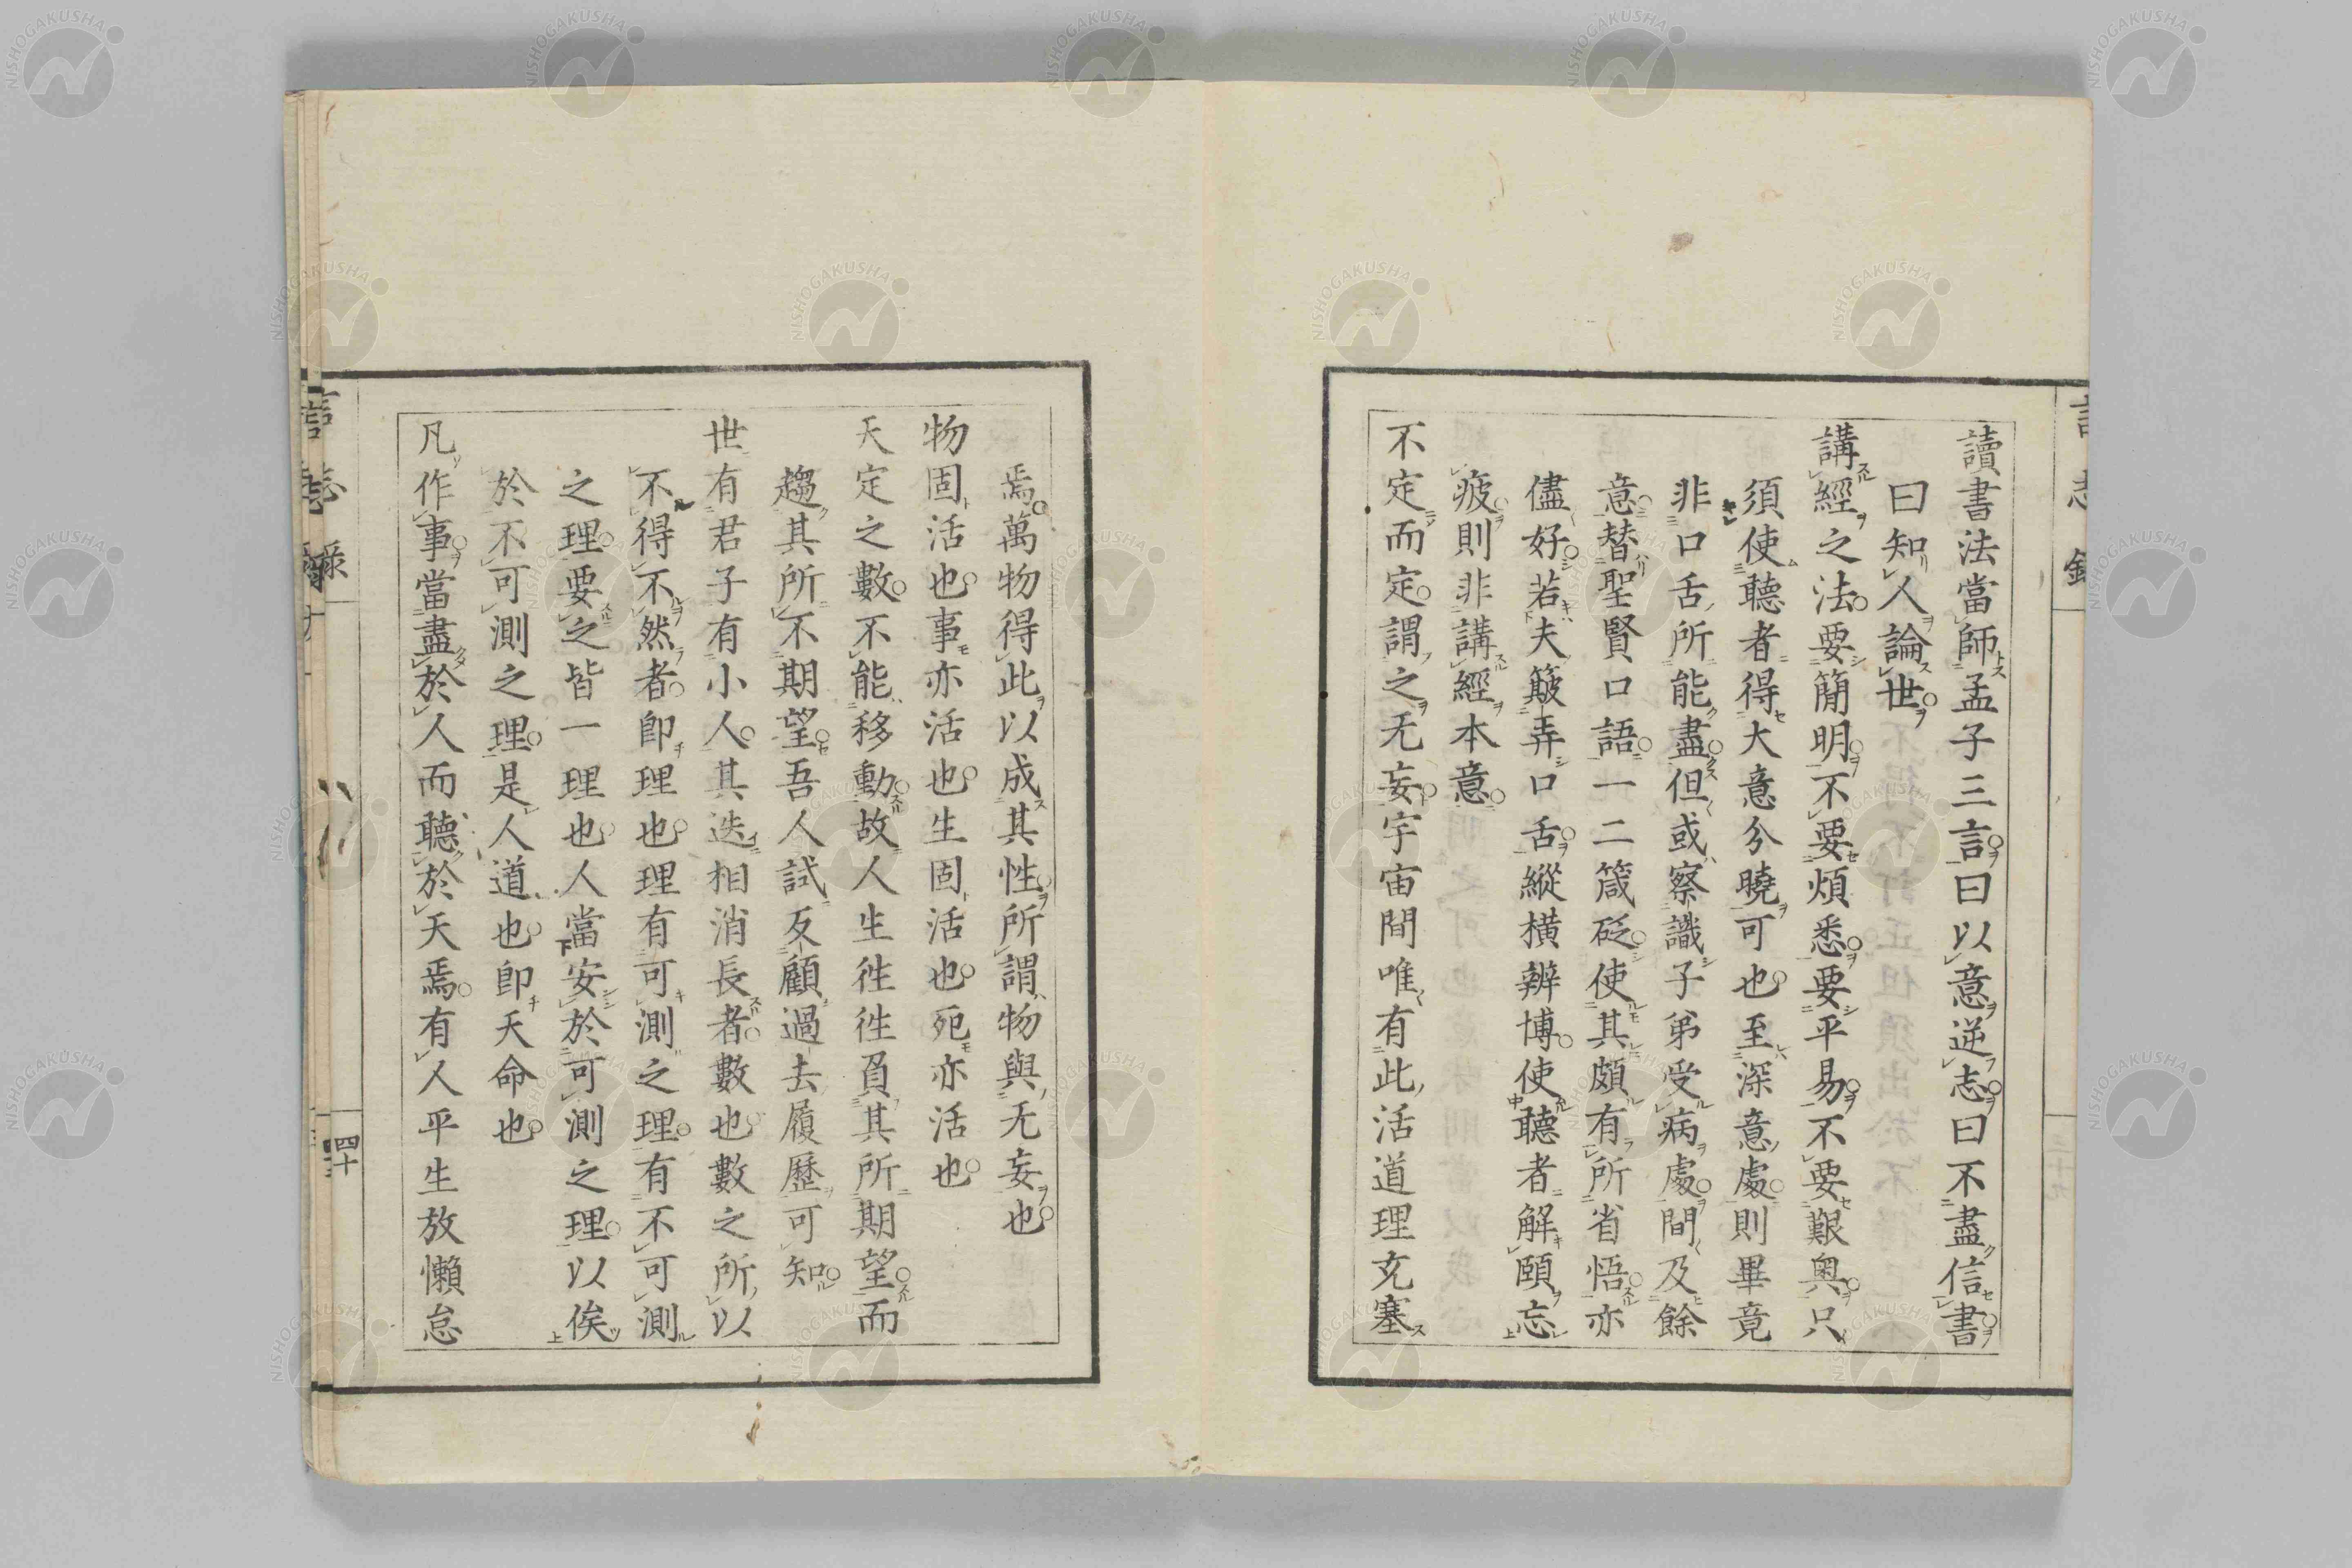 讀書法當師孟子三言曰以意逆志曰不盡信書
曰知人論世
講經之法要簡明不要煩悉要平易不要艱奧只
須使聽者得大意分曉可也至深意處則畢竟
非口舌所能盡但或察識子弟受病處間及餘
意替聖賢口語一二箴砭使其頗有所省悟亦
儘好若夫簸弄口舌縱橫辨博使聽者解頤忘
疲則非講經本意
不定而定謂之无妄宇宙間唯有此活道理充塞
焉萬物得此以成其性所謂物與无妄也
物固活也事亦活也生固活也死亦活也
天定之數不能移動故人生徃徃負其所期望而
趨其所不期望吾人試反顧過去履歷可知
世有君子有小人其迭相消長者數也數之所以
不得不然者卽理也理有可測之理有不可測
之理要之皆一理也人當安於可測之理以俟
於不可測之理是人道也卽天命也
凡作事當盡於人而聽於天焉有人平生放懶怠
言志錄
四十
NISHOGAKUSHA